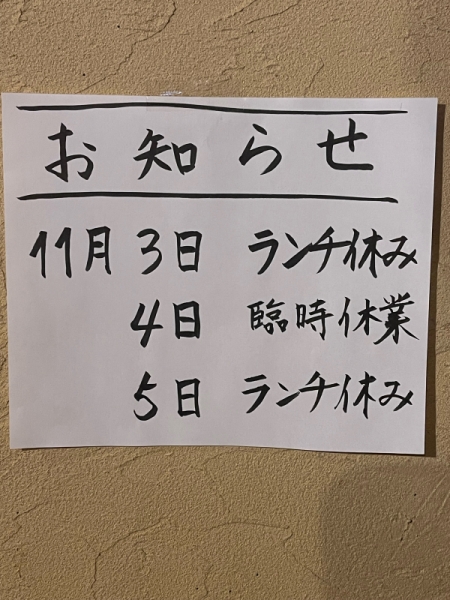 お知らせ
11月 3日 ランチ休み
4日 臨時休業
5日 ランチ休み